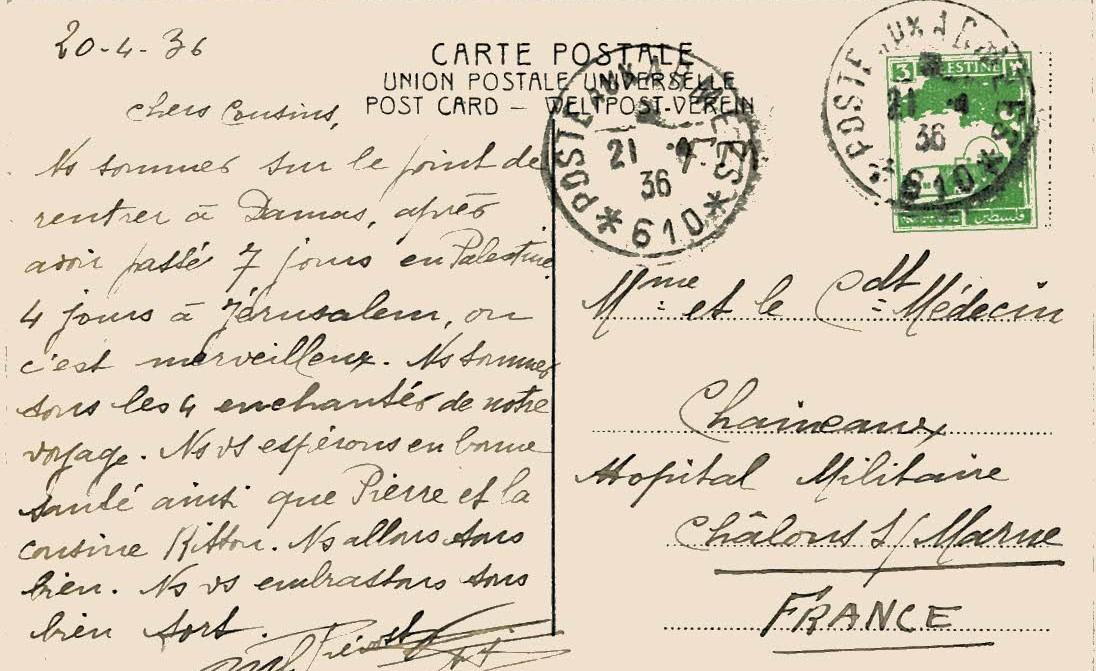 20-4-36
CARTE POSTALE
UNION POSTALE UNIVERSELLE
POST CARD - WELTPOST-VEREIN
chers Cousins,
Ns sommes sur le point de
rentrer à Damas, après
avoir passé 7 jours en Palestine
4 jours à Jérusalem, ou
c'est merveilleux. Ns sommes
tous les 4 enchantés de notre
voyage. Ns vs espérons en bonne
santé ainsi que Pierre et la
cousine Ritton. Ns allons tous
bien. Ns vs embrassons tous
bien fort.
POSTE AUX ARMEES
21 -4
36
* 610 *
3 PALESTINE
POSTE AUX ARMEES
21 -4
36
* 610 *
فلسطين
Mme et le Cdt Médecin
Chaineaux
Hopital Militaire
Châlons s/Marne
FRANCE